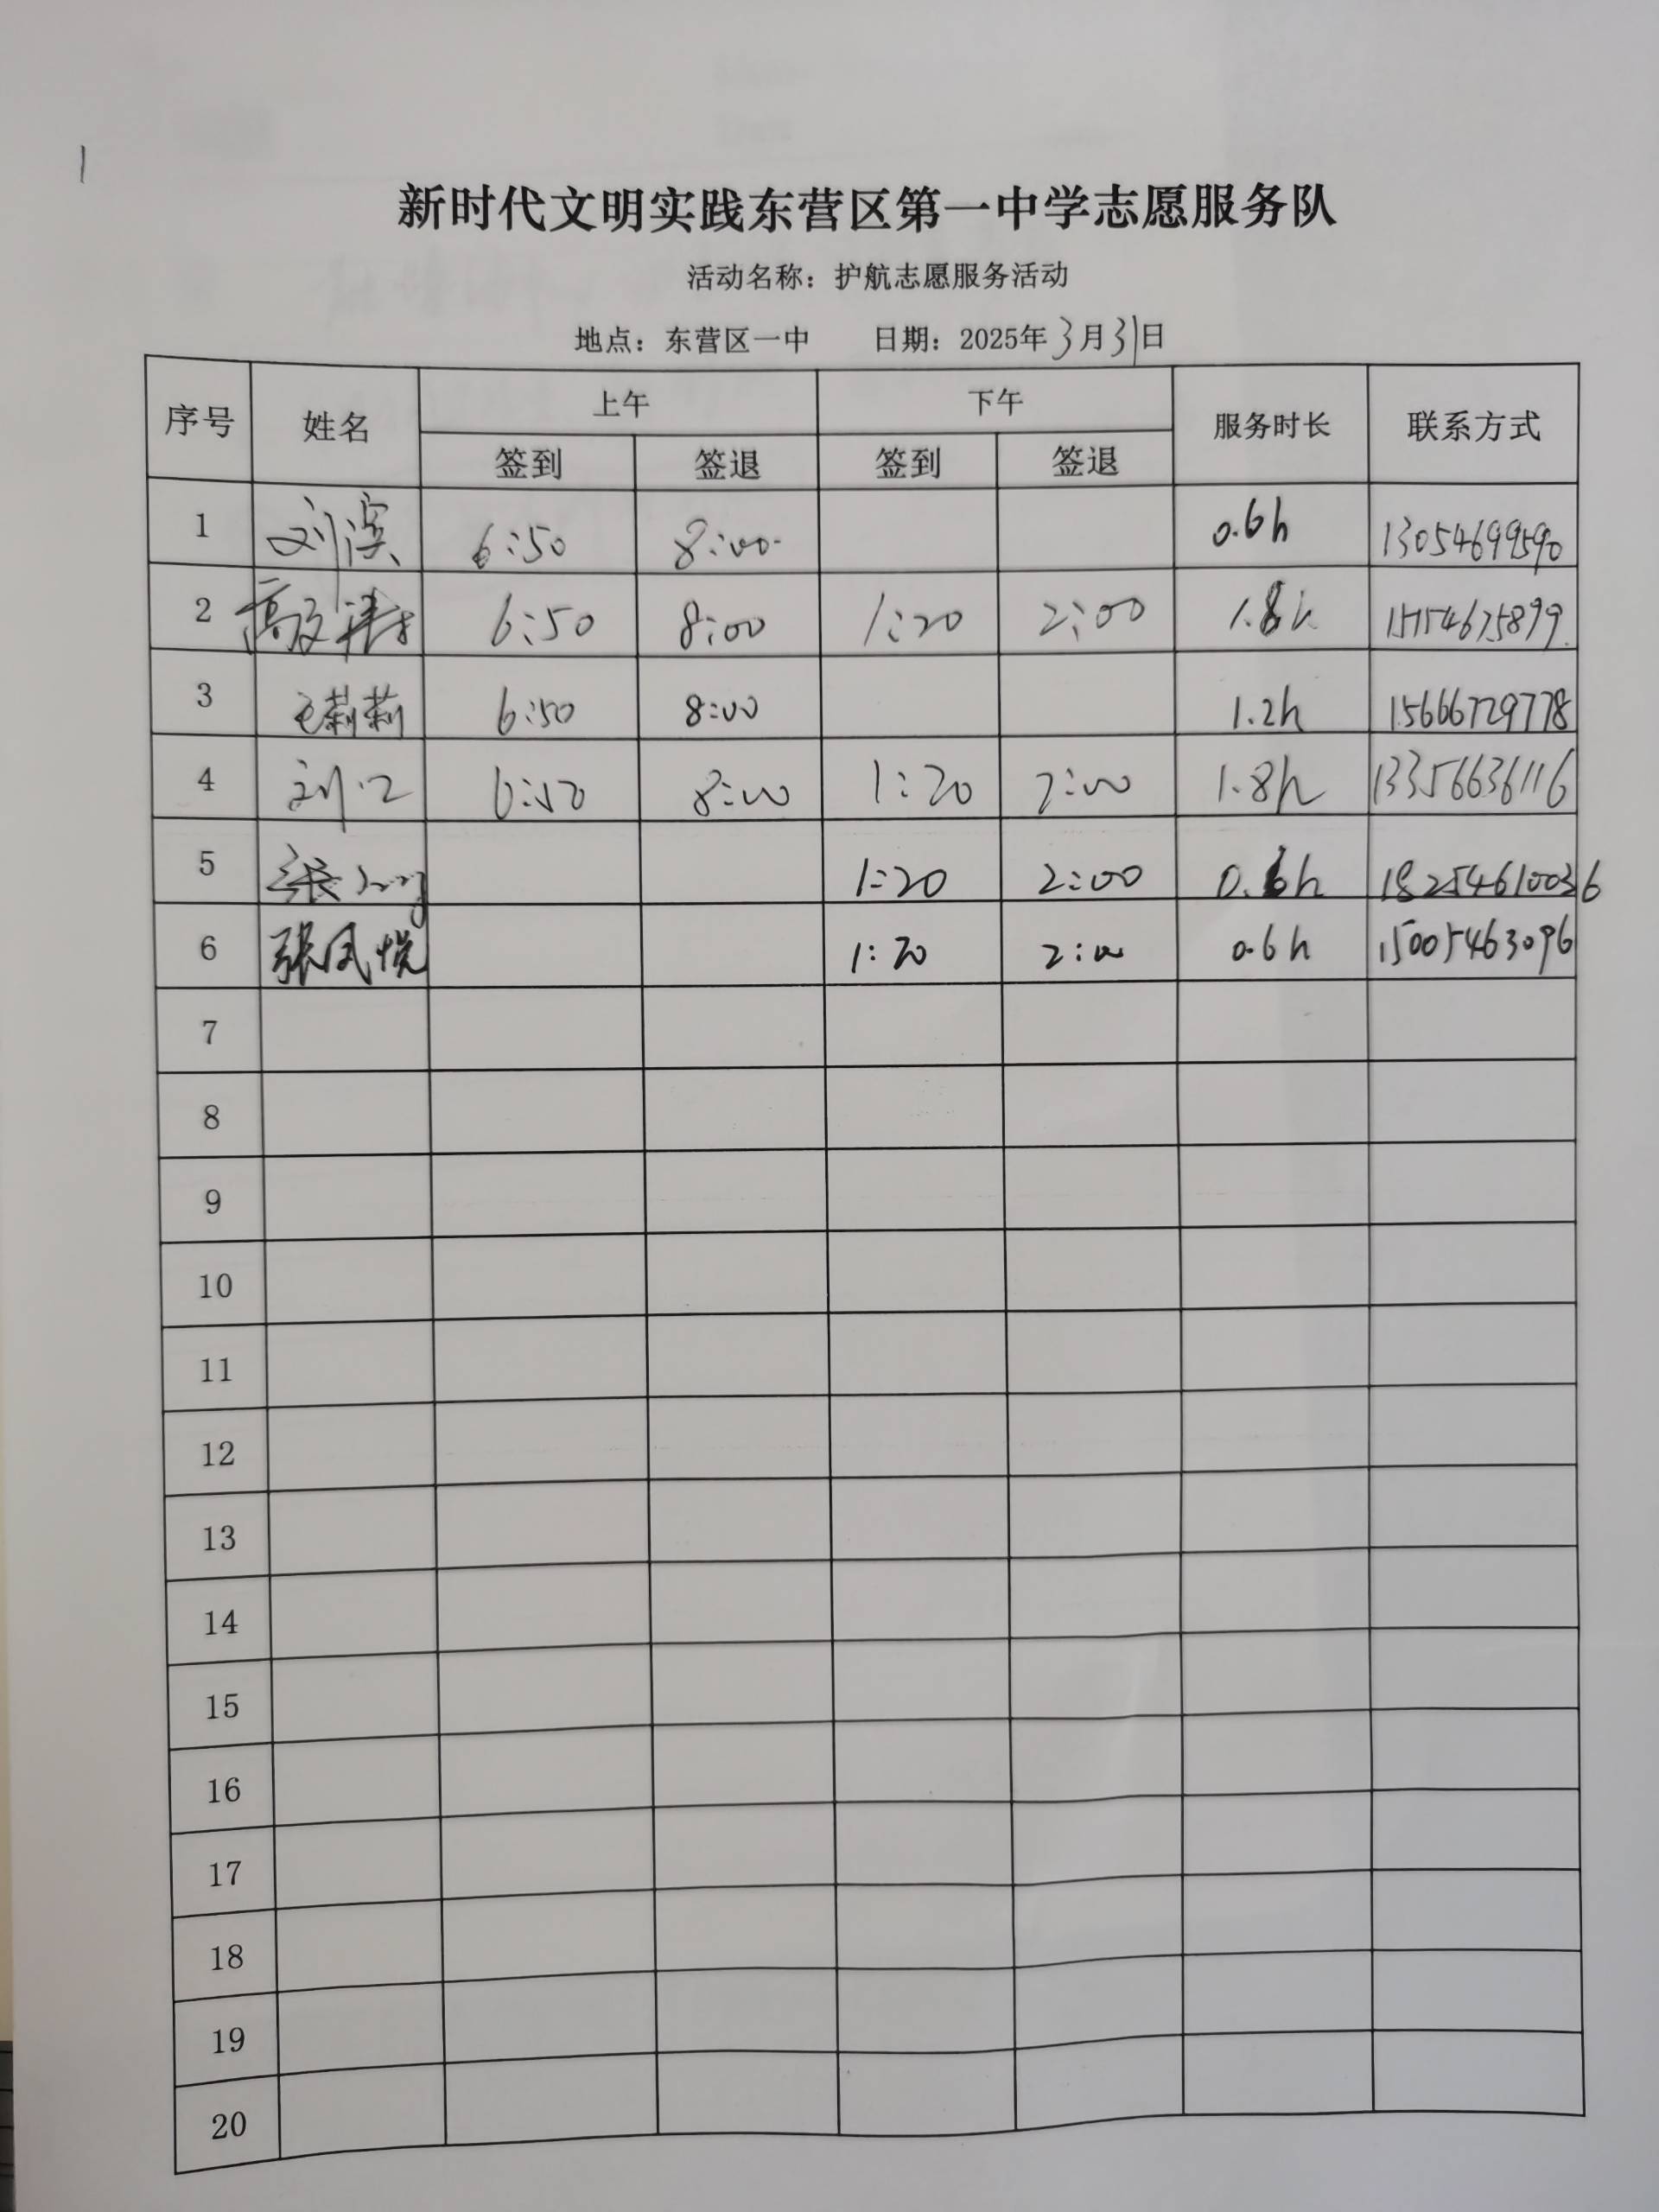 1
新时代文明实践东营区第一中学志愿服务队
活动名称：护航志愿服务活动
地点：东营区一中 日期：2025年3月31日
序号 姓名 上午 下午 服务时长 联系方式
签到 签退 签到 签退
1 刘滨 6:50 8:00 0.6h 13054699590
2 高 6:50 8:00 1:20 2:00 1.8h 15154675899
3 毛莉莉 6:50 8:00 1.2h 15666729778
4 刘 6:50 8:00 1:20 2:00 1.8h 13356636116
5 1:20 2:00 0.6h 18254610036
6 張凤悦 1:20 2:00 0.6h 15005463096
7
8
9
10
11
12
13
14
15
16
17
18
19
20